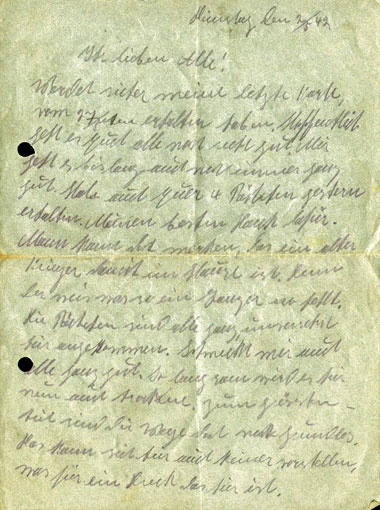 Dienstag den 2/6 42
Ihr lieben Alle!
Werdet sicher meine letzte Karte,
vom 27ten erhalten haben. Hoffentlich
geht es Euch alle noch recht gut. Mir
geht es bis lang auch noch immer ganz
gut. Habe auch Euer 4 Päckchen gestern
erhalten. Meinen besten Dank dafür.
Mann kann es merken, das ein alter
Krieger damit im Hause ist. Denn
der weis was so ein Landser fehlt.
Die Päckchen sind alle ganz unversehrt
hir angekommen. Schmeckt mir auch
alle ganz gut. So langsam wird es hir
nun auch trocken. Zum grössten
teil sind die Wege doch noch grundlos.
Das kann sich hir auch keiner vorstellen,
was hier ein Dreck das hir ist.